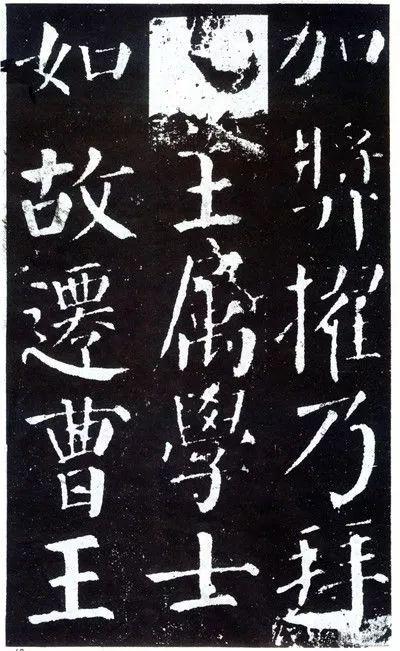 加奬擢乃拜
王屬學士
如故遷曹王